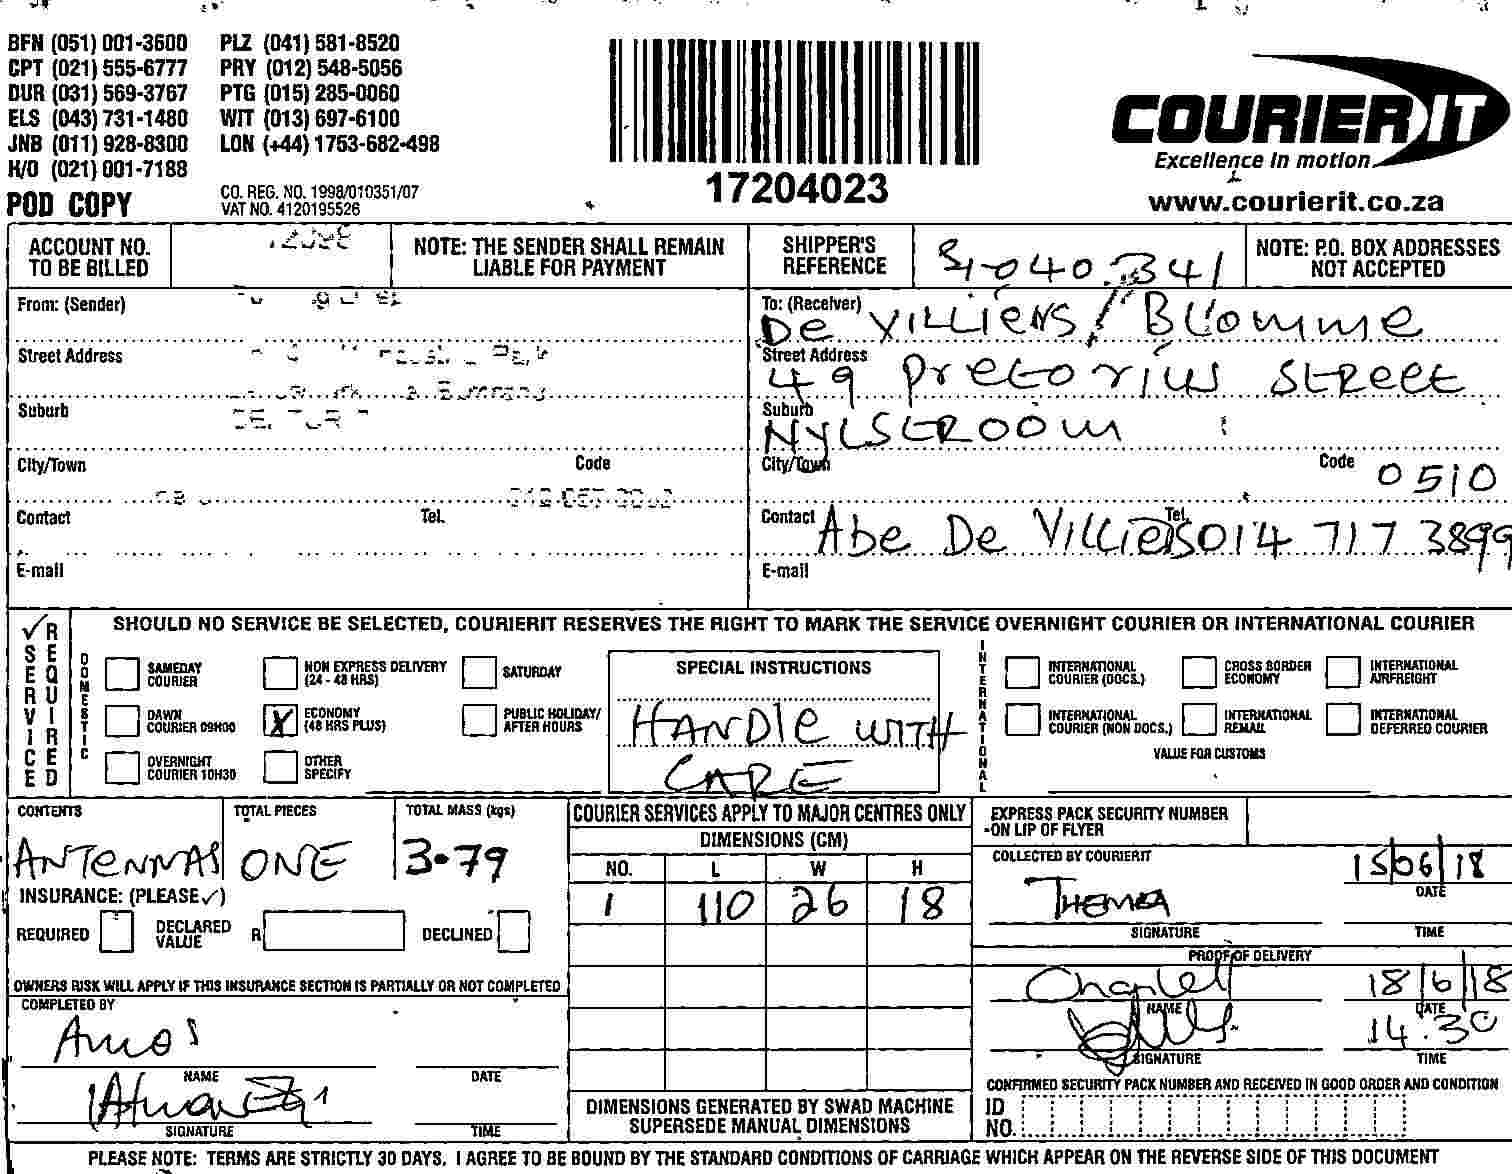 BFN (051) 001-3600 PLZ (041) 581-8520
CPT (021) 555-6777 PRY (012) 548-5056
DUR (031) 569-3767 PTG (015) 285-0060
ELS (043) 731-1480 WIT (013) 697-6100
JNB (011) 928-8300 LON (+44) 1753-682-498
H/O (021) 001-7188
POD COPY
CO. REG. NO. 1998/010351/07
VAT NO. 4120195526
17204023
COURIER IT
Excellence in motion
www.courierit.co.za
ACCOUNT NO. TO BE BILLED
NOTE: THE SENDER SHALL REMAIN LIABLE FOR PAYMENT
SHIPPER'S REFERENCE
NOTE: P.O. BOX ADDRESSES NOT ACCEPTED
From: (Sender)
Street Address
Suburb
City/Town Code
Contact Tel.
E-mail
To: (Receiver)
De VILLIERS / Blomme
Street Address
49 Pretorius Street
Suburb
NYLSTROOM
City/Town Code 0510
Contact Abe De Villiers Tel. 014 717 3899
E-mail
✓ SERVICE REQUIRED
SHOULD NO SERVICE BE SELECTED, COURIERIT RESERVES THE RIGHT TO MARK THE SERVICE OVERNIGHT COURIER OR INTERNATIONAL COURIER
DOMESTIC
SAMEDAY COURIER
NON EXPRESS DELIVERY (24 - 48 HRS)
SATURDAY
DAWN COURIER 09H00
X ECONOMY (48 HRS PLUS)
PUBLIC HOLIDAY/ AFTER HOURS
OVERNIGHT COURIER 10H30
OTHER SPECIFY
SPECIAL INSTRUCTIONS
HANDLE WITH
CARE
INTERNATIONAL
INTERNATIONAL COURIER (DOCS.)
CROSS BORDER ECONOMY
INTERNATIONAL AIRFREIGHT
INTERNATIONAL COURIER (NON DOCS.)
INTERNATIONAL REMAIL
INTERNATIONAL DEFERRED COURIER
VALUE FOR CUSTOMS
CONTENTS TOTAL PIECES TOTAL MASS (kgs)
ANTENNAS ONE 3.79
INSURANCE: (PLEASE ✓)
REQUIRED DECLARED VALUE R DECLINED
OWNERS RISK WILL APPLY IF THIS INSURANCE SECTION IS PARTIALLY OR NOT COMPLETED
COMPLETED BY
Amos
NAME DATE
SIGNATURE TIME
COURIER SERVICES APPLY TO MAJOR CENTRES ONLY
DIMENSIONS (CM)
NO. L W H
1 110 26 18
DIMENSIONS GENERATED BY SWAD MACHINE
SUPERSEDE MANUAL DIMENSIONS
EXPRESS PACK SECURITY NUMBER
-ON LIP OF FLYER
COLLECTED BY COURIERIT
15/06/18
DATE
SIGNATURE TIME
PROOF OF DELIVERY
18/6/18
NAME DATE
14.30
SIGNATURE TIME
CONFIRMED SECURITY PACK NUMBER AND RECEIVED IN GOOD ORDER AND CONDITION
ID NO.
PLEASE NOTE: TERMS ARE STRICTLY 30 DAYS. I AGREE TO BE BOUND BY THE STANDARD CONDITIONS OF CARRIAGE WHICH APPEAR ON THE REVERSE SIDE OF THIS DOCUMENT